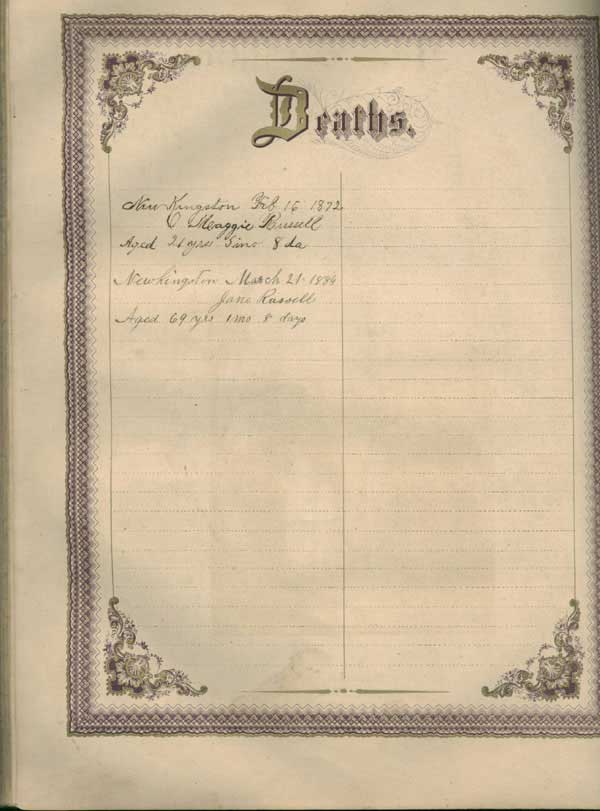 Deaths.
New Kingston Feb 16 1872
Maggie Russell
Aged 21 yrs 5 mo 8 da
New Kingston March 21 1884
Jane Russell
Aged 69 yrs 1 mo 8 days